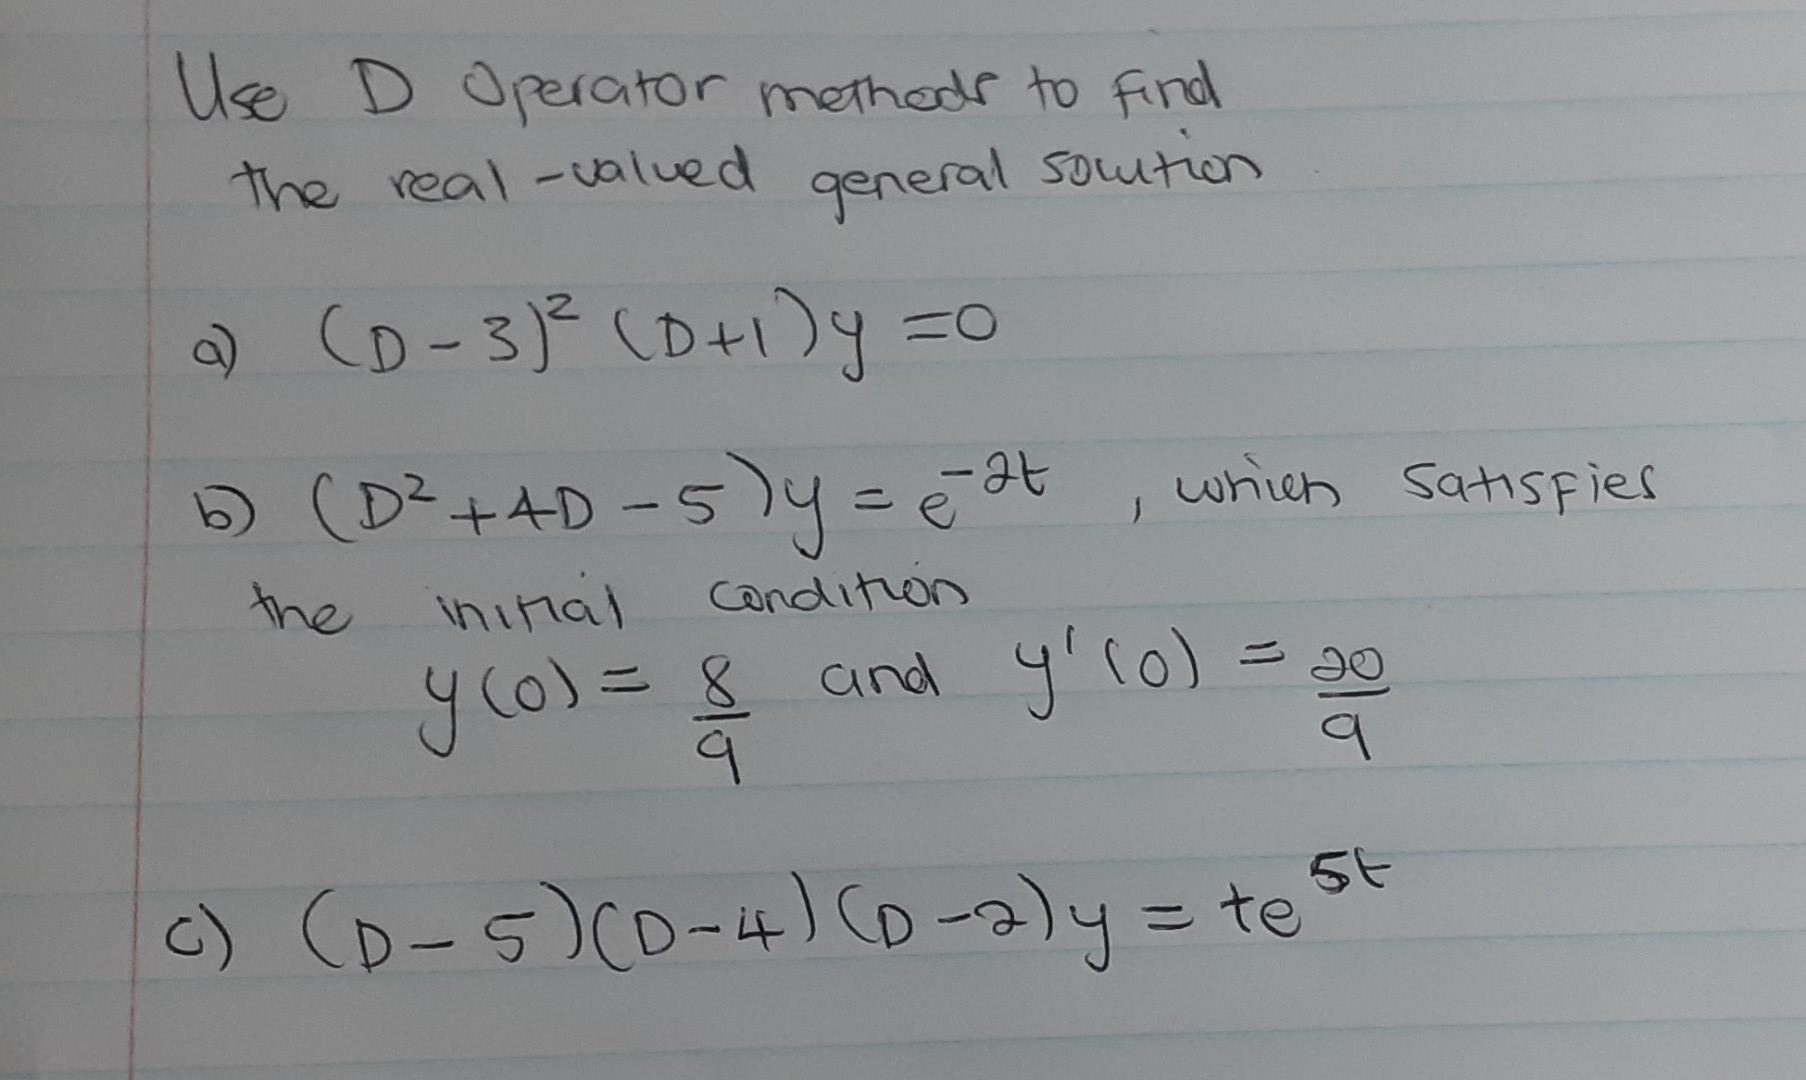 Use D Operator methods to find
the real-valued general solution
a) (D-3)² (D+1)y =0
b) (D²+4D-5)y = e^-2t , which satisfies
the initial condition
y(0) = 8/9 and y'(0) = 20/9
c) (D-5)(D-4)(D-2)y = te^5t